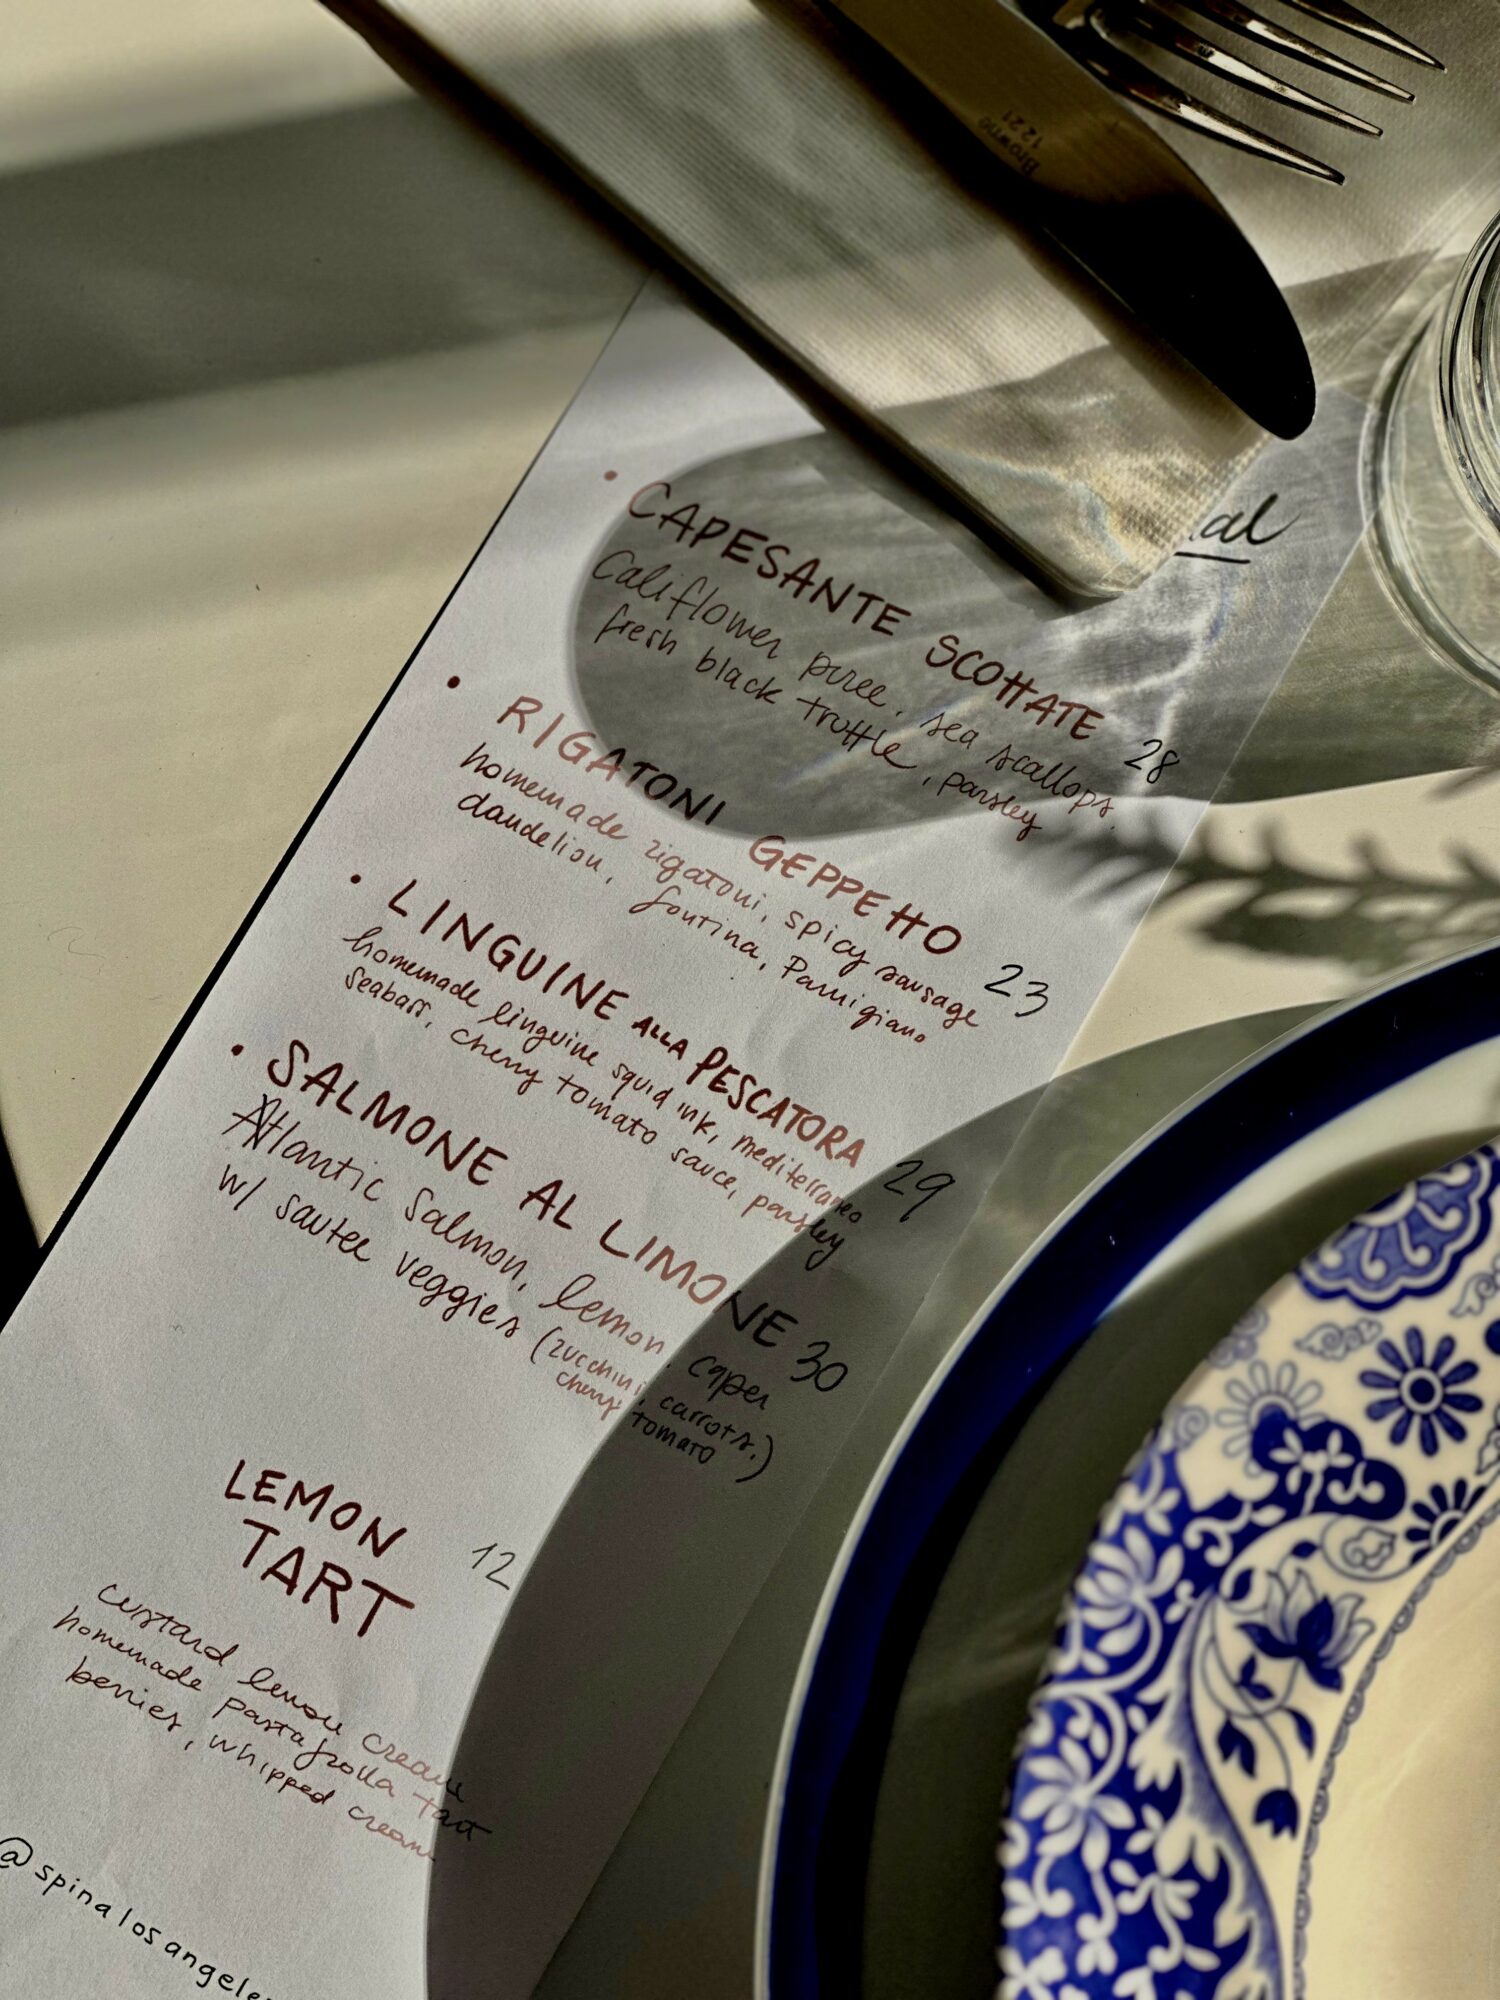 Browne
1221
al
• CAPESANTE SCOTTATE 28
Califlower puree, sea scallops,
fresh black truffle, parsley
• RIGATONI GEPPETTO 23
homemade rigatoni, spicy sausage
dandelion, fontina, Parmigiano
• LINGUINE ALLA PESCATORA 29
homemade linguine squid ink, mediterraneo
seabass, cherry tomato sauce, parsley
• SALMONE AL LIMONE 30
Atlantic Salmon, lemon, caper
w/ sautee veggies (zucchini, carrots.)
cherry tomato
LEMON
TART 12
custard lemon cream
homemade pastafrolla tart
berries, whipped cream
@spinalosangele